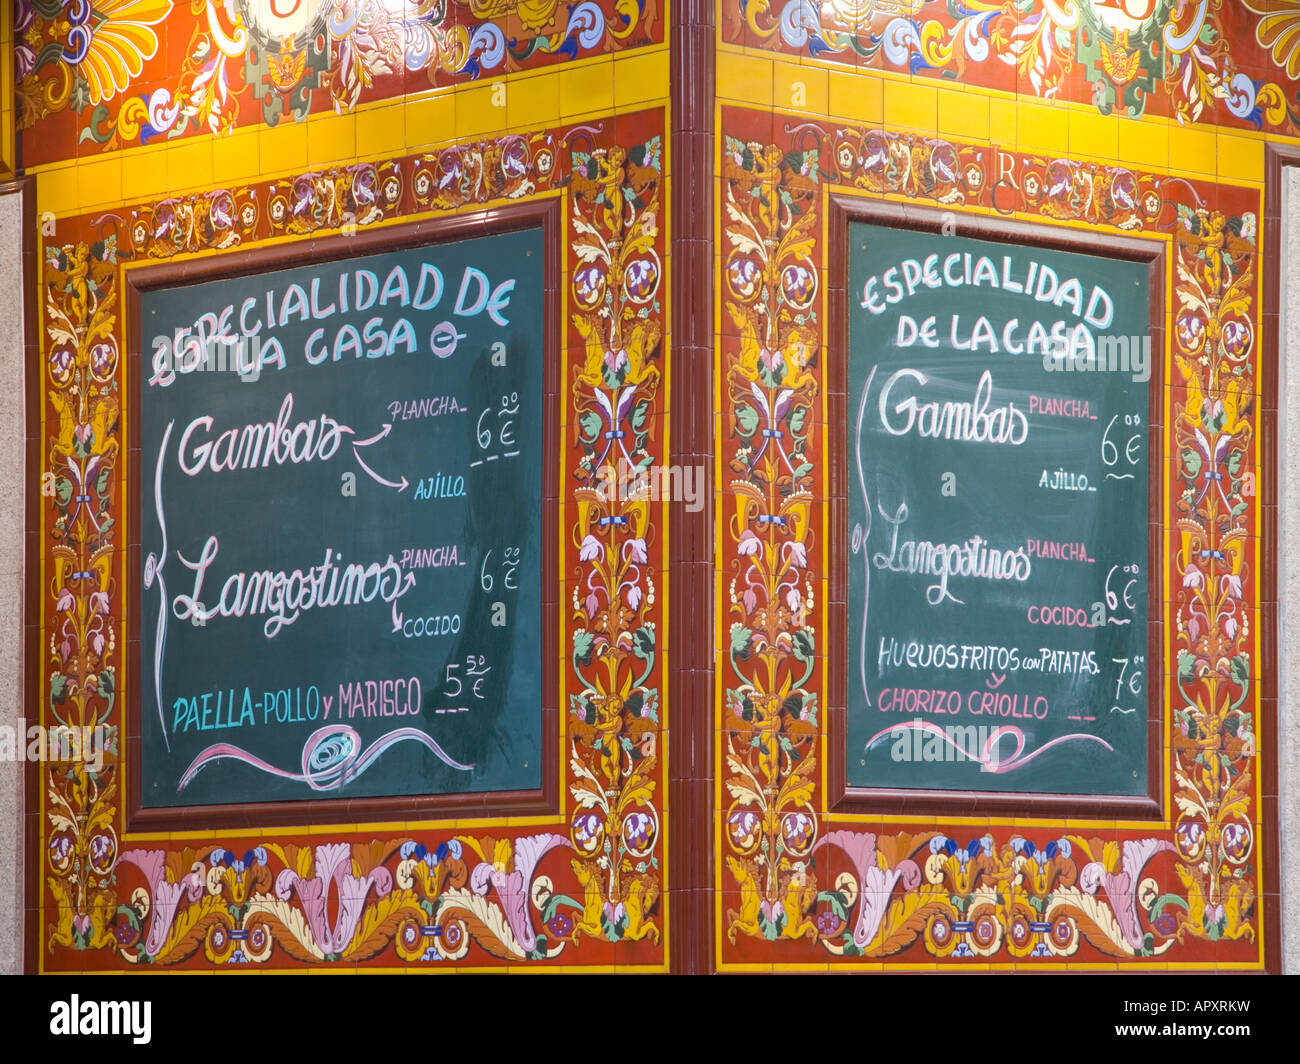 ESPECIALIDAD DE
LA CASA
Gambas PLANCHA_ 6,00 €
AJILLO_
Langostinos PLANCHA_ 6,00 €
COCIDO
PAELLA-POLLO y MARISCO 5,50 €
ESPECIALIDAD
DE LA CASA
Gambas PLANCHA_ 6,00 €
AJILLO_
Langostinos PLANCHA_ 6,00 €
COCIDO_
HUEVOS FRITOS con PATATAS. 7,00 €
y
CHORIZO CRIOLLO _ _
R
C
alamy
alamy
Image ID: APXRKW
www.alamy.com